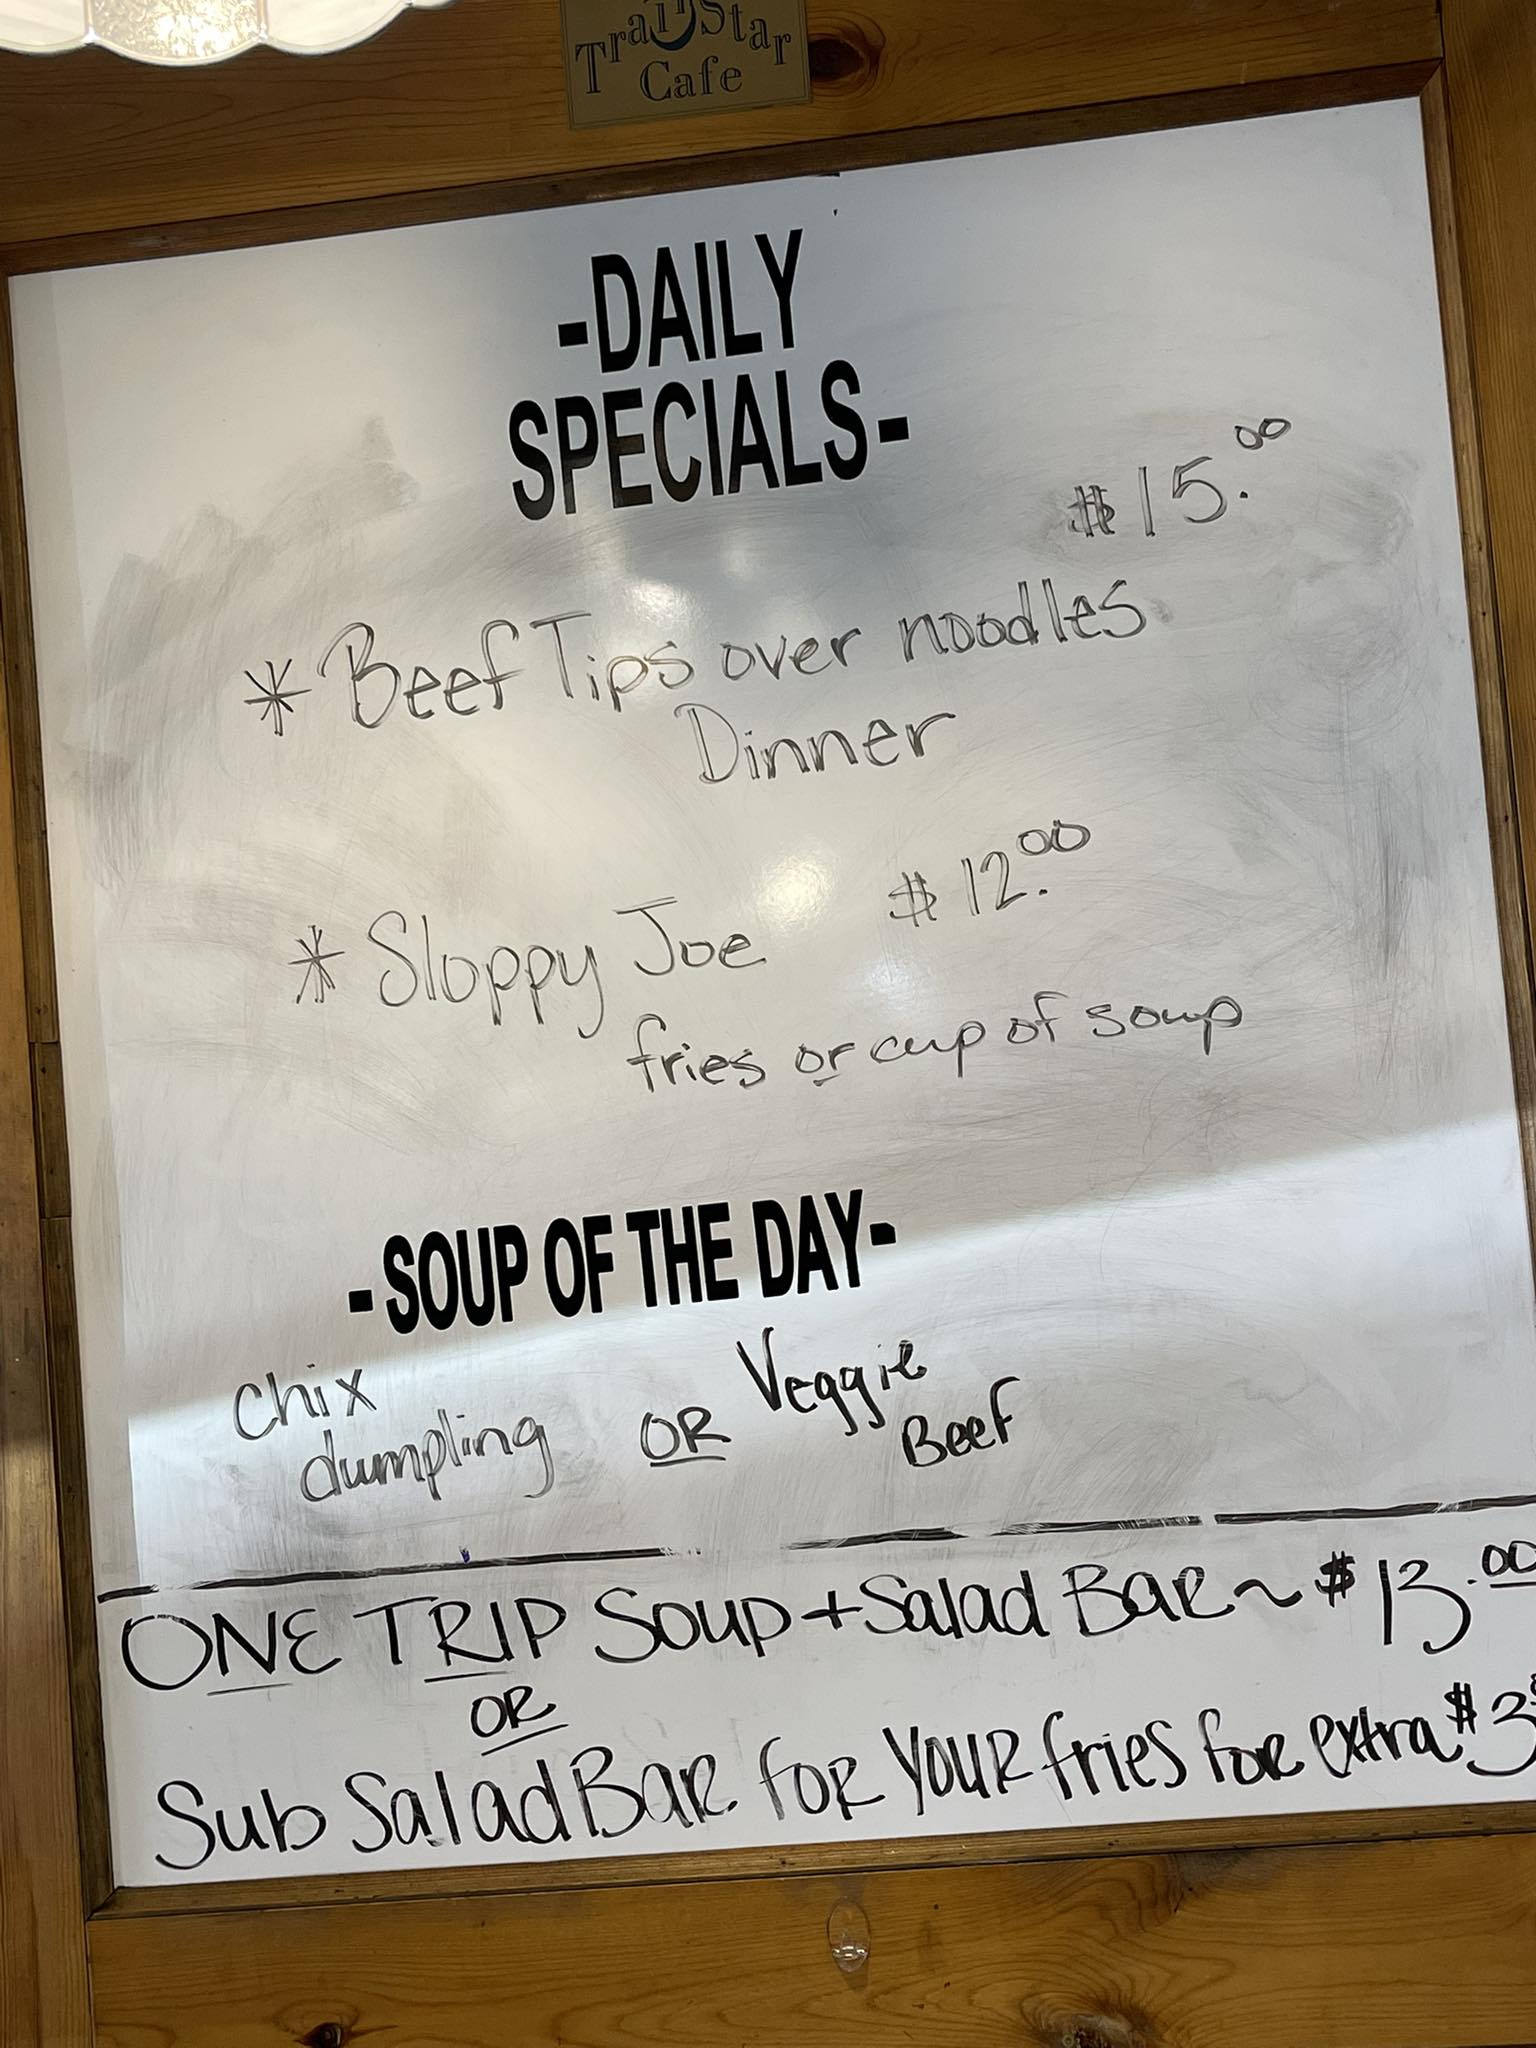 TrailStar
Cafe
-DAILY
SPECIALS-
$15.00
* Beef Tips over noodles
Dinner
* Sloppy Joe $12.00
fries or cup of soup
-SOUP OF THE DAY-
Chix
dumpling OR Veggie
Beef
ONE TRIP Soup + Salad BAR ~ $13.00
OR
Sub Salad BAR for YOUR fries for extra $3